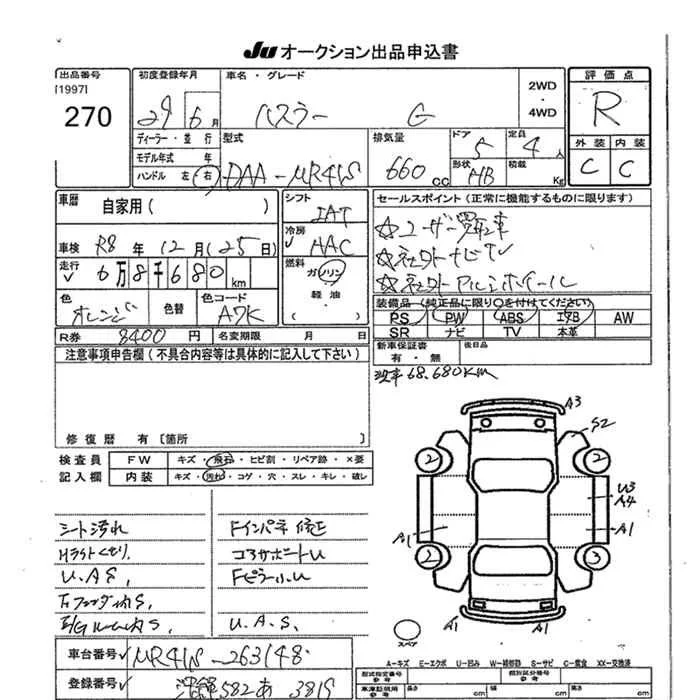 JU オークション出品申込書
出品番号
[1997]
270
初度登録年月
29 6月
車名・グレード
ハスラー G
2WD
・
4WD
評価点
R
外装 内装
C C
ディーラー・並行
モデル年式 年
ハンドル 左 右
型式
DAA-MR41S
排気量
660cc
ドア
5
定員
4人
形状
HB
積載
Kg
車歴
自家用( )
シフト
IAT
セールスポイント(正常に機能するものに限ります)
☆ユーザー買取車
☆社外ナビTV
☆社外アルミホイール
車検 R8年12月(25日)
冷房
AAC
走行
6万8千680km
燃料
ガソリン
軽油
( )
色
オレンジ
色替
色コード
A7K
装備品(純正品に限り○を付けてください)
PS PW ABS エアB AW
SR ナビ TV 本革
R券 8400円
名変期限 月 日
新車保証書
有・無
後日品
注意事項申告欄(不具合内容等は具体的に記入して下さい)
68.680KM
修復歴 有[箇所 ]
検査員
記入欄
FW キズ・飛石・ヒビ割・リペア跡・×要
内装 キズ・汚れ・コゲ・穴・スレ・キレ・破レ
シート汚れ
Hライトくもり
U.A.S,
Fインパネ修正
コアサポートU
U.A.S.
A3
S2
2
2
U3
A4
A1
A1
2
3
A1
A1
スペア
A-キズ E-エクボ U-凹み W-補修跡 S-サビ C-腐食 XX-交換済
車台番号
MR41S-263148
登録番号
沖縄 582 あ 3819
型式指定番号
参考
類別区分番号
参考
車庫証明用
参考
長さ cm
幅 cm
高さ cm